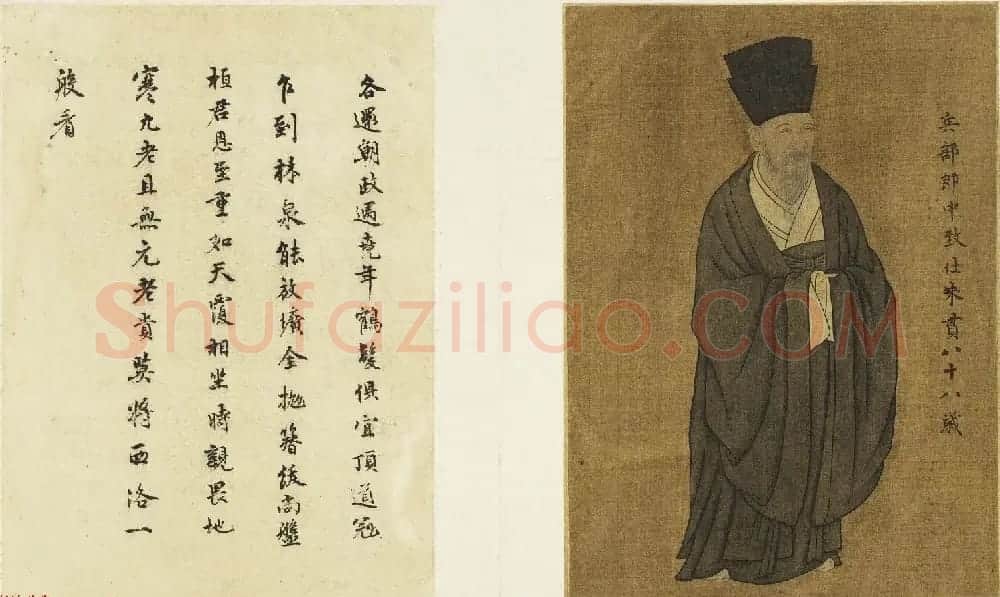 兵部郎中致仕朱貫八十八歲
各還朝政遇堯年鶴髮俱宜頂道冠
乍到林泉能放曠全拋簪紱尚盤
桓君恩至重如天覆相坐時親畏地
寒九老且無元老貴莫將西洛一
般看
Shufaziliao.COM